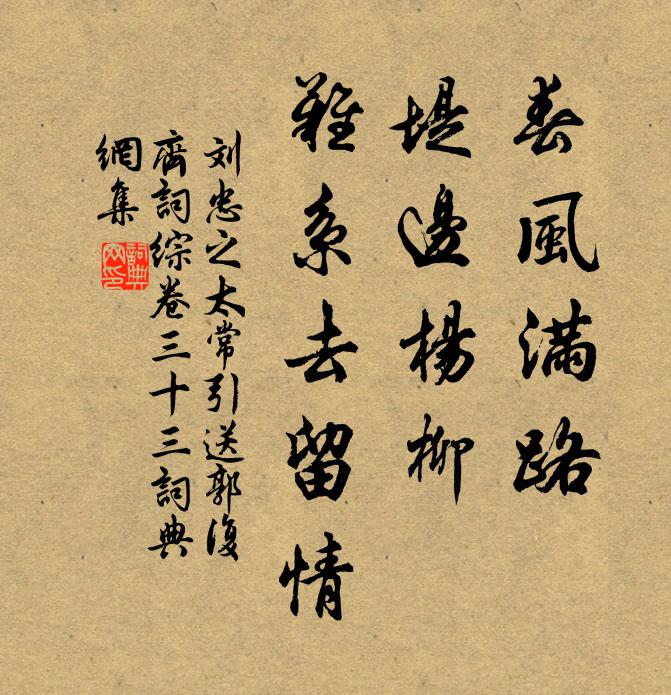 春風滿路
堤邊楊柳
難系去留情
刘忠之太常引送郭復
齊詞綜卷三十三詞典
網集
詞典
网印